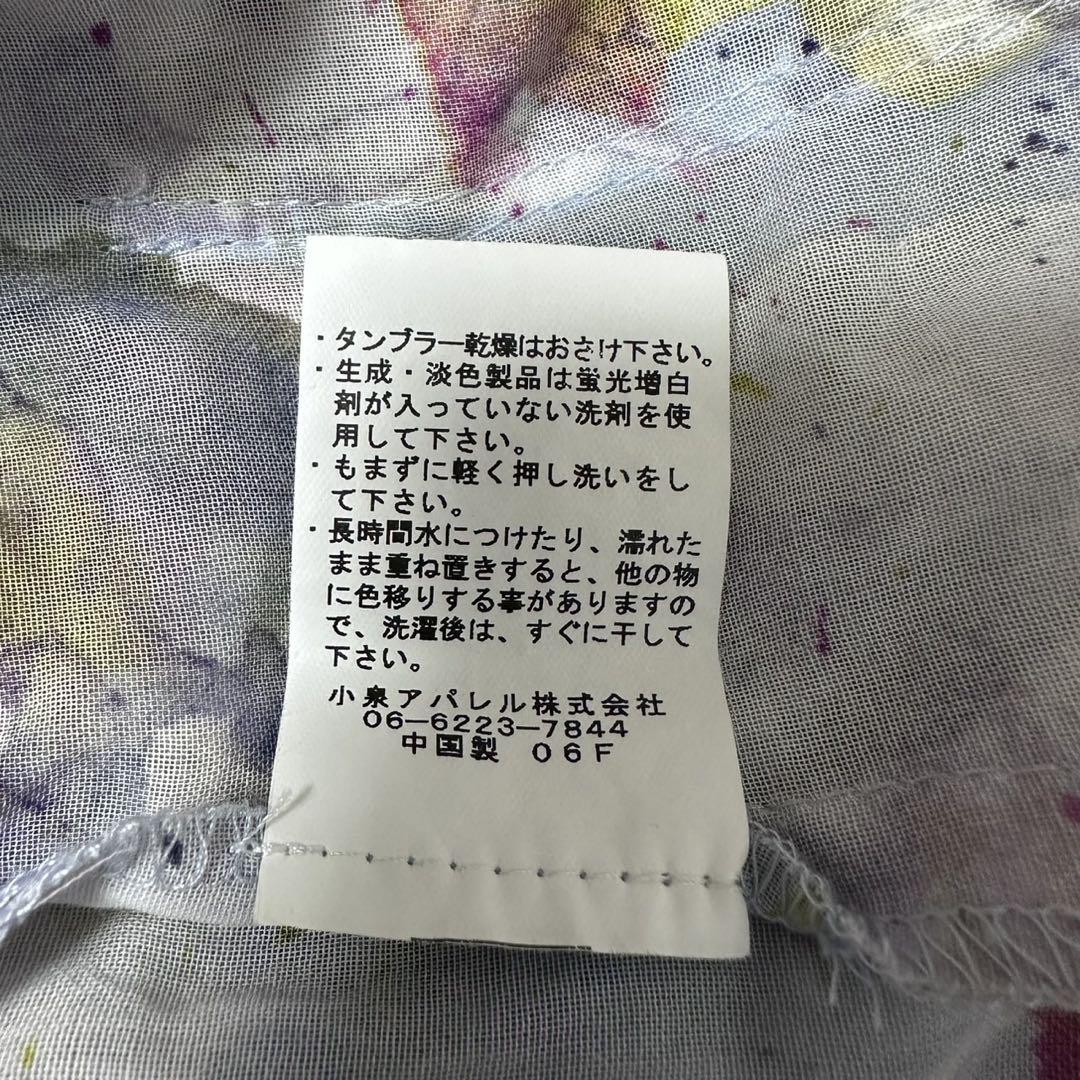 ・タンブラー乾燥はおさけ下さい。
・生成・淡色製品は蛍光増白
剤が入っていない洗剤を使
用して下さい。
・もまずに軽く押し洗いをし
て下さい。
・長時間水につけたり、濡れた
まま重ね置きすると、他の物
に色移りする事がありますの
で、洗濯後は、すぐに干して
下さい。
小泉アパレル株式会社
06−6223−7844
中国製 06F